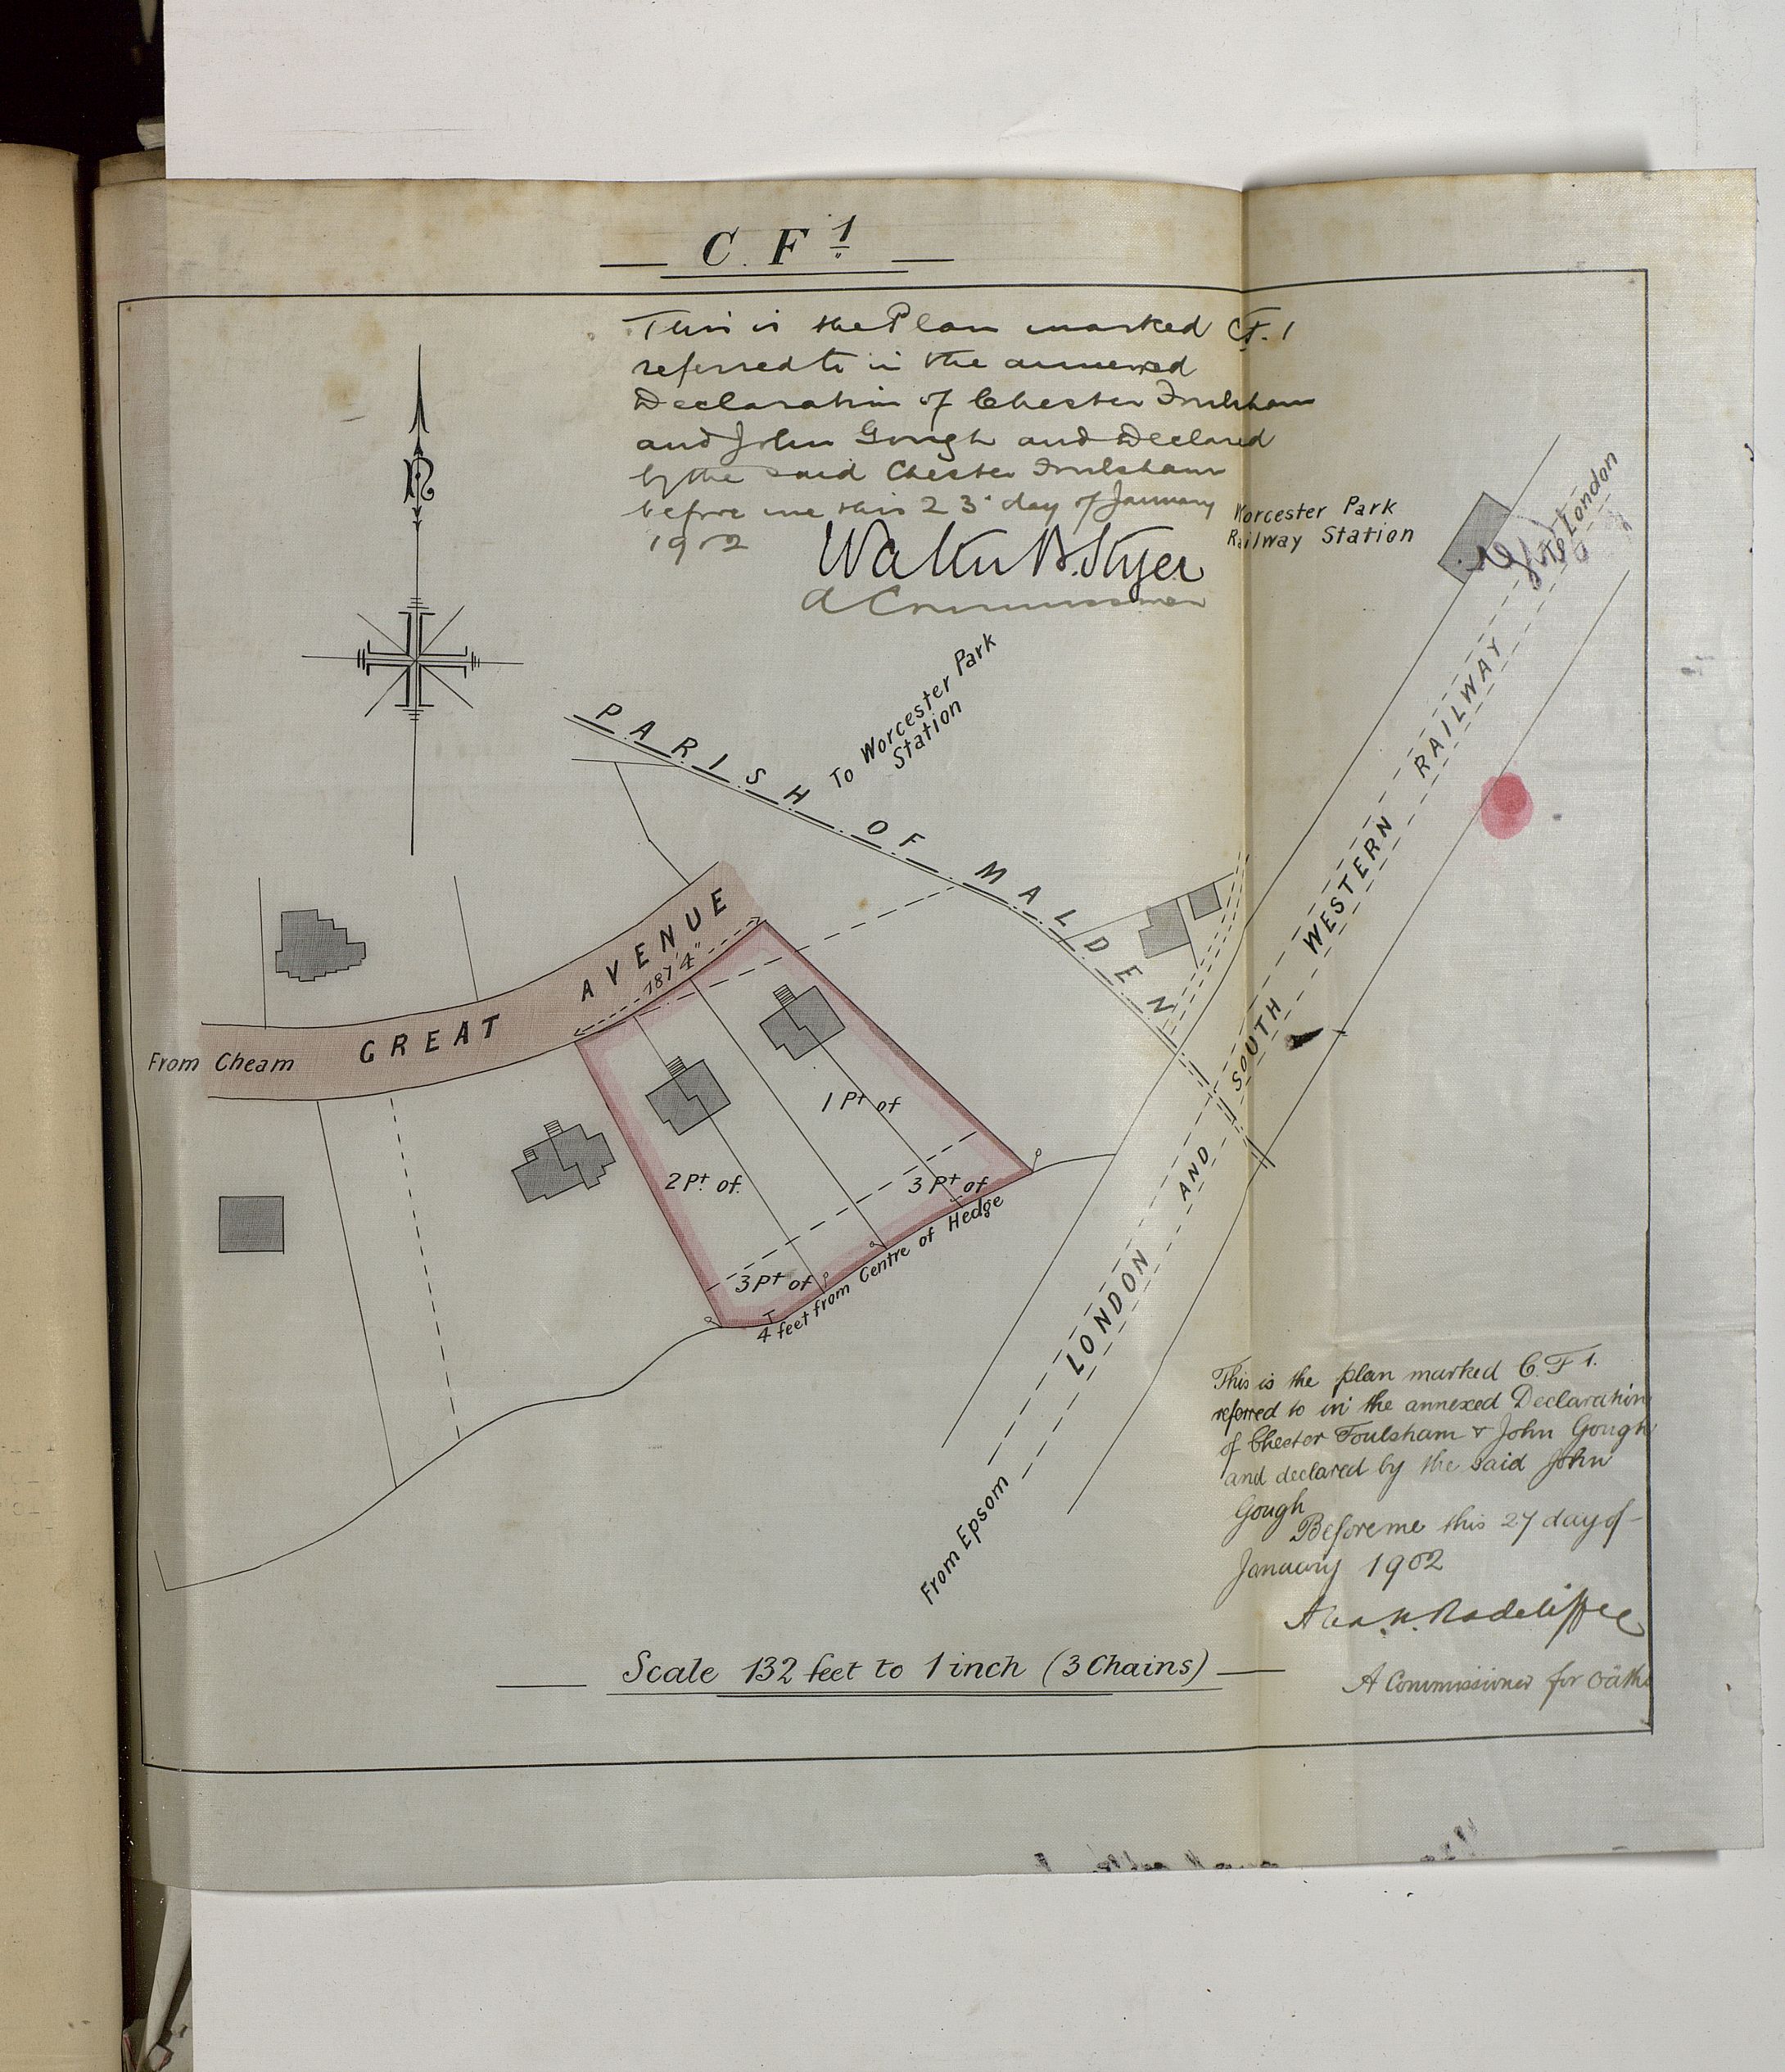 C. F 1
This is the Plan marked C.F. 1
referred to in the annexed
Declaration of Chester Foulsham
and John Gough and Declared
by the said Chester Foulsham
before me this 23 day of January
1902
Walter B. Styer
A Commissioner
Worcester Park
Railway Station
To London
N
To Worcester Park
Station
PARISH OF MALDEN
GREAT AVENUE
187' 4"
From Cheam
1 Pt of
2 Pt. of.
3 Pt of
3 Pt of
T
4 feet from Centre of Hedge
LONDON AND SOUTH WESTERN RAILWAY
From Epsom
This is the plan marked C. F 1.
referred to in the annexed Declaration
of Chester Foulsham & John Gough
and declared by the said John
Gough
Before me this 27 day of
January 1902
Alex. N. Radcliffe
A Commissioner for Oaths
Scale 132 feet to 1 inch (3 Chains)